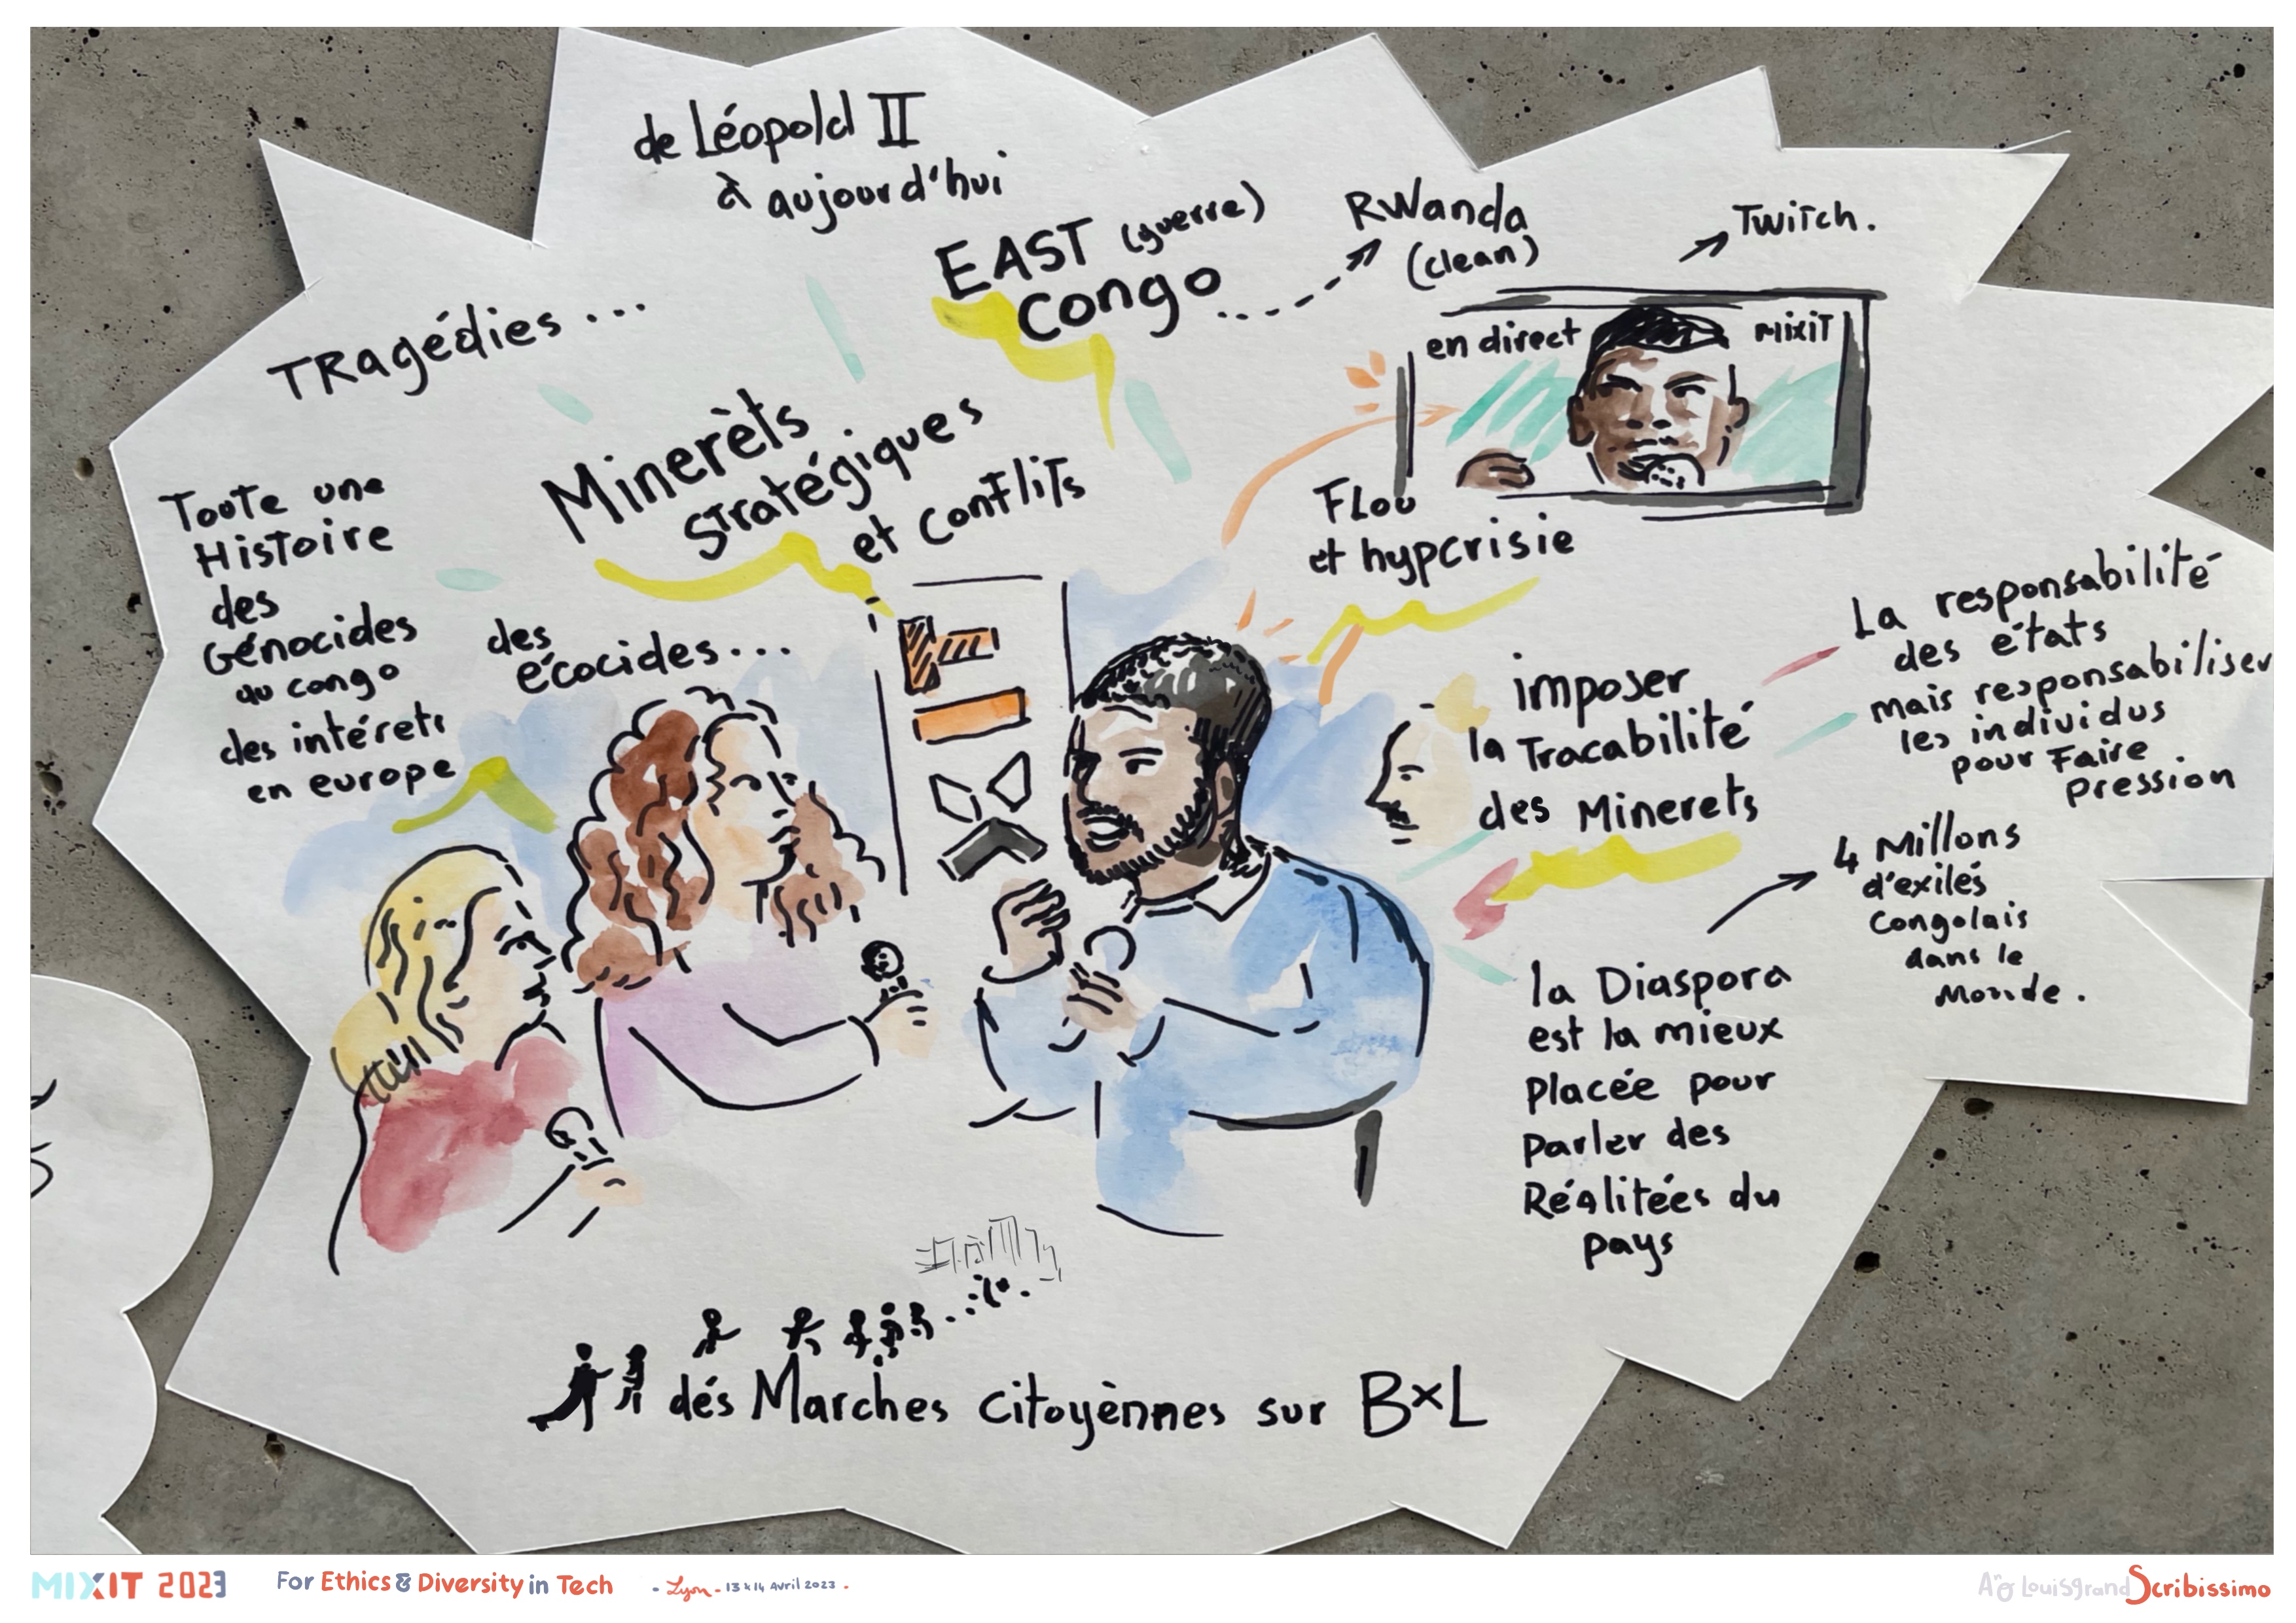 de Léopold II
à aujourd'hui
TRagédies ...
EAST (guerre)
Congo
RWanda
(clean)
Twitch.
en direct
MixiT
Minerèts
stratégiques
et conflits
Toute une
Histoire
des
Génocides
au congo
des intérets
en europe
des
écocides...
FLou
et hypcrisie
imposer
la Tracabilité
des Minerets
La responsabilité
des états
mais responsabiliser
les individus
pour Faire
pression
4 Millons
d'exilés
Congolais
dans le
Monde.
la Diaspora
est la mieux
Placée pour
Parler des
Réalitées du
pays
dés Marches citoyènnes sur BxL
MIXIT 2023
For Ethics & Diversity in Tech
- Lyon - 13 & 14 Avril 2023 -
Louisgrand Scribissimo